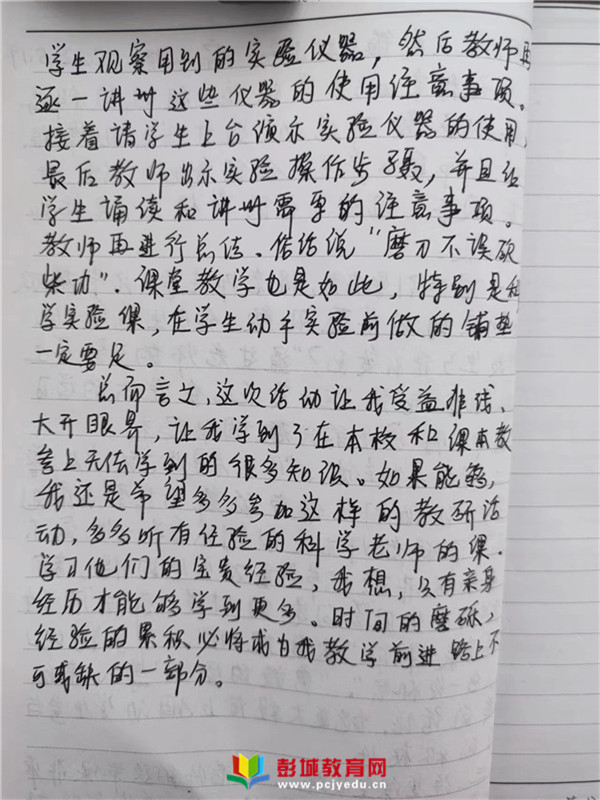 学生观察用到的实验仪器，然后教师再
逐一讲时这些仪器的使用注意事项。
接着请学生上台演示实验仪器的使用，
最后教师出示实验操作步骤，并且让
学生诵读和讲时需要的注意事项。
教师再进行总结、俗话说“磨刀不误砍
柴功”．课堂教学也是如此，特别是科
学实验课，在学生动手实验前做的铺垫
一定要足。
总而言之，这次活动让我受益非浅、
大开眼界，让我学到了在本校和课本教
参上无法学到的很多知识。如果能够，
我还是希望多多参加这样的教研活
动，多多听有经验的科学老师的课．
学习他们的宝贵经验，我想，只有亲身
经历才能够学到更多。时间的磨砥，
经验的累积必将成为我教学前进路上不
可或缺的一部分。
彭城教育网
www.pcjyedu.cn